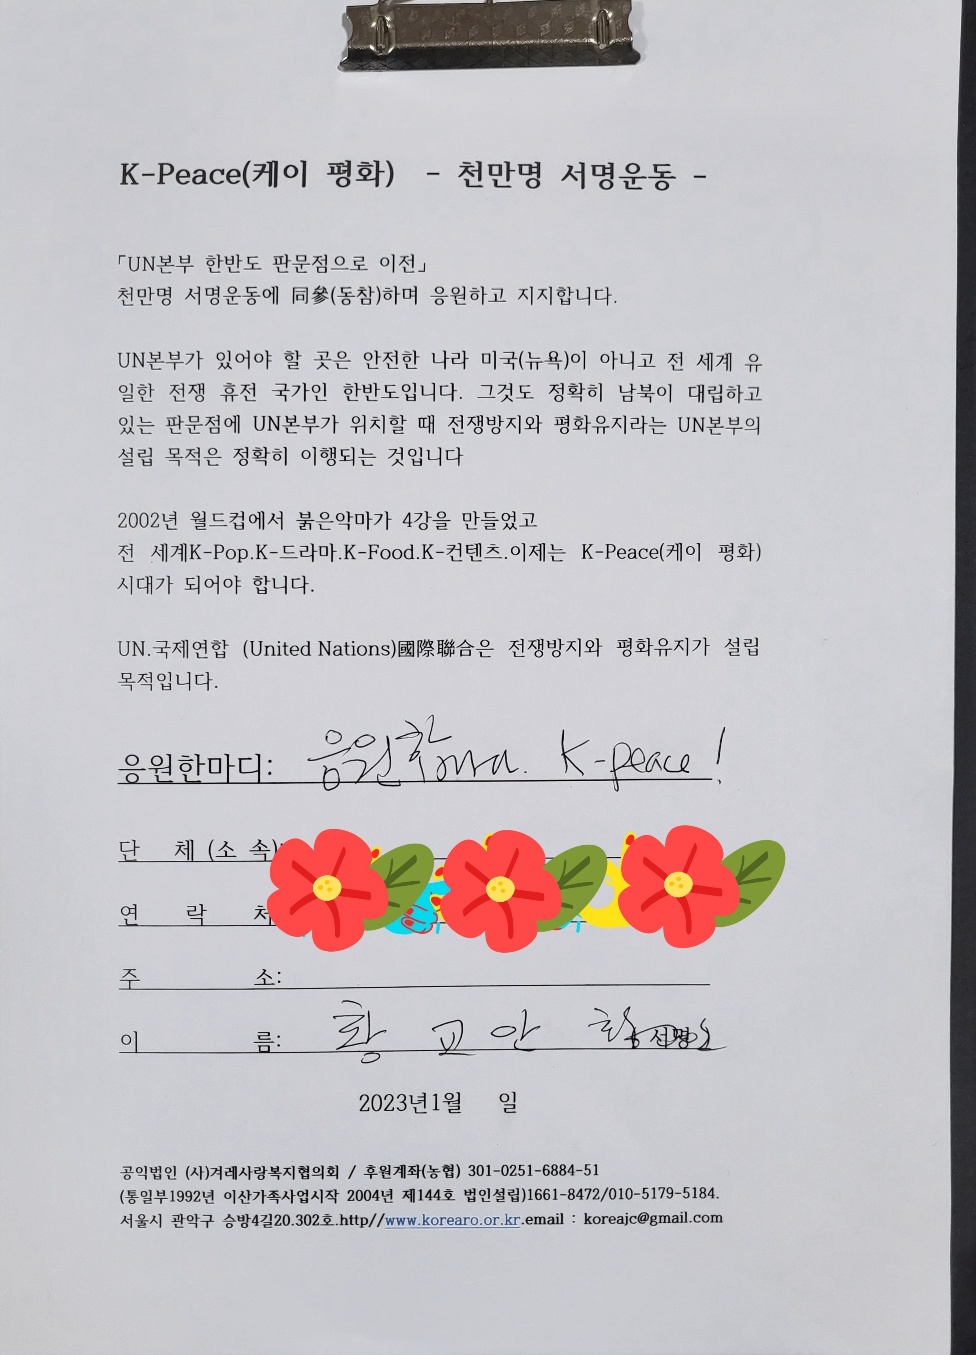 K-Peace(케이 평화) - 천만명 서명운동 -
「UN본부 한반도 판문점으로 이전」
천만명 서명운동에 同參(동참)하며 응원하고 지지합니다.
UN본부가 있어야 할 곳은 안전한 나라 미국(뉴욕)이 아니고 전 세계 유
일한 전쟁 휴전 국가인 한반도입니다. 그것도 정확히 남북이 대립하고
있는 판문점에 UN본부가 위치할 때 전쟁방지와 평화유지라는 UN본부의
설립 목적은 정확히 이행되는 것입니다
2002년 월드컵에서 붉은악마가 4강을 만들었고
전 세계K-Pop.K-드라마.K-Food.K-컨텐츠.이제는 K-Peace(케이 평화)
시대가 되어야 합니다.
UN.국제연합 (United Nations)國際聯合은 전쟁방지와 평화유지가 설립
목적입니다.
응원한마디: 응원합니다. K-peace!
단 체 (소 속):
연 락 처
주 소:
이 름: 황 교 안 서명
2023년1월 일
공익법인 (사)겨레사랑복지협의회 / 후원계좌(농협) 301-0251-6884-51
(통일부1992년 이산가족사업시작 2004년 제144호 법인설립)1661-8472/010-5179-5184.
서울시 관악구 승방4길20.302호.http//www.korearo.or.kr.email : koreajc@gmail.com